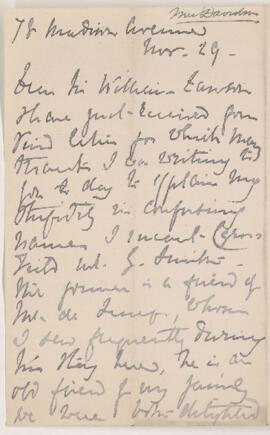 Mrs Davidson
78 Madison Avenue
Nov. 29 -
Dear Sir William - Dawson
I have just received your
kind letter for which many
thanks I was writing to
you to day to explain my
stupidity in confusing
names I meant
not G. Smith -
The former is a friend of
Mr. de
I saw frequently during
his stay here, he is an
old friend of my family
we were both delighted